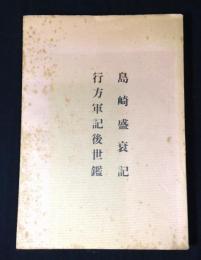 島崎盛衰記
行方軍記後世鑑